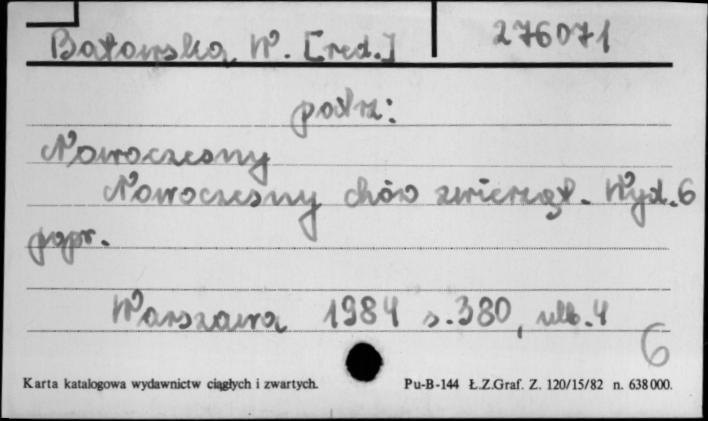 Batowska W. [red.] 276071
patrz:
Nowoczesny
Nowoczesny chów zwierząt. Wyd. 6
popr.
Warszawa 1984 s. 380, nlb. 4
6
Karta katalogowa wydawnictw ciągłych i zwartych. Pu-B-144 Ł.Z.Graf. Z. 120/15/82 n. 638000.